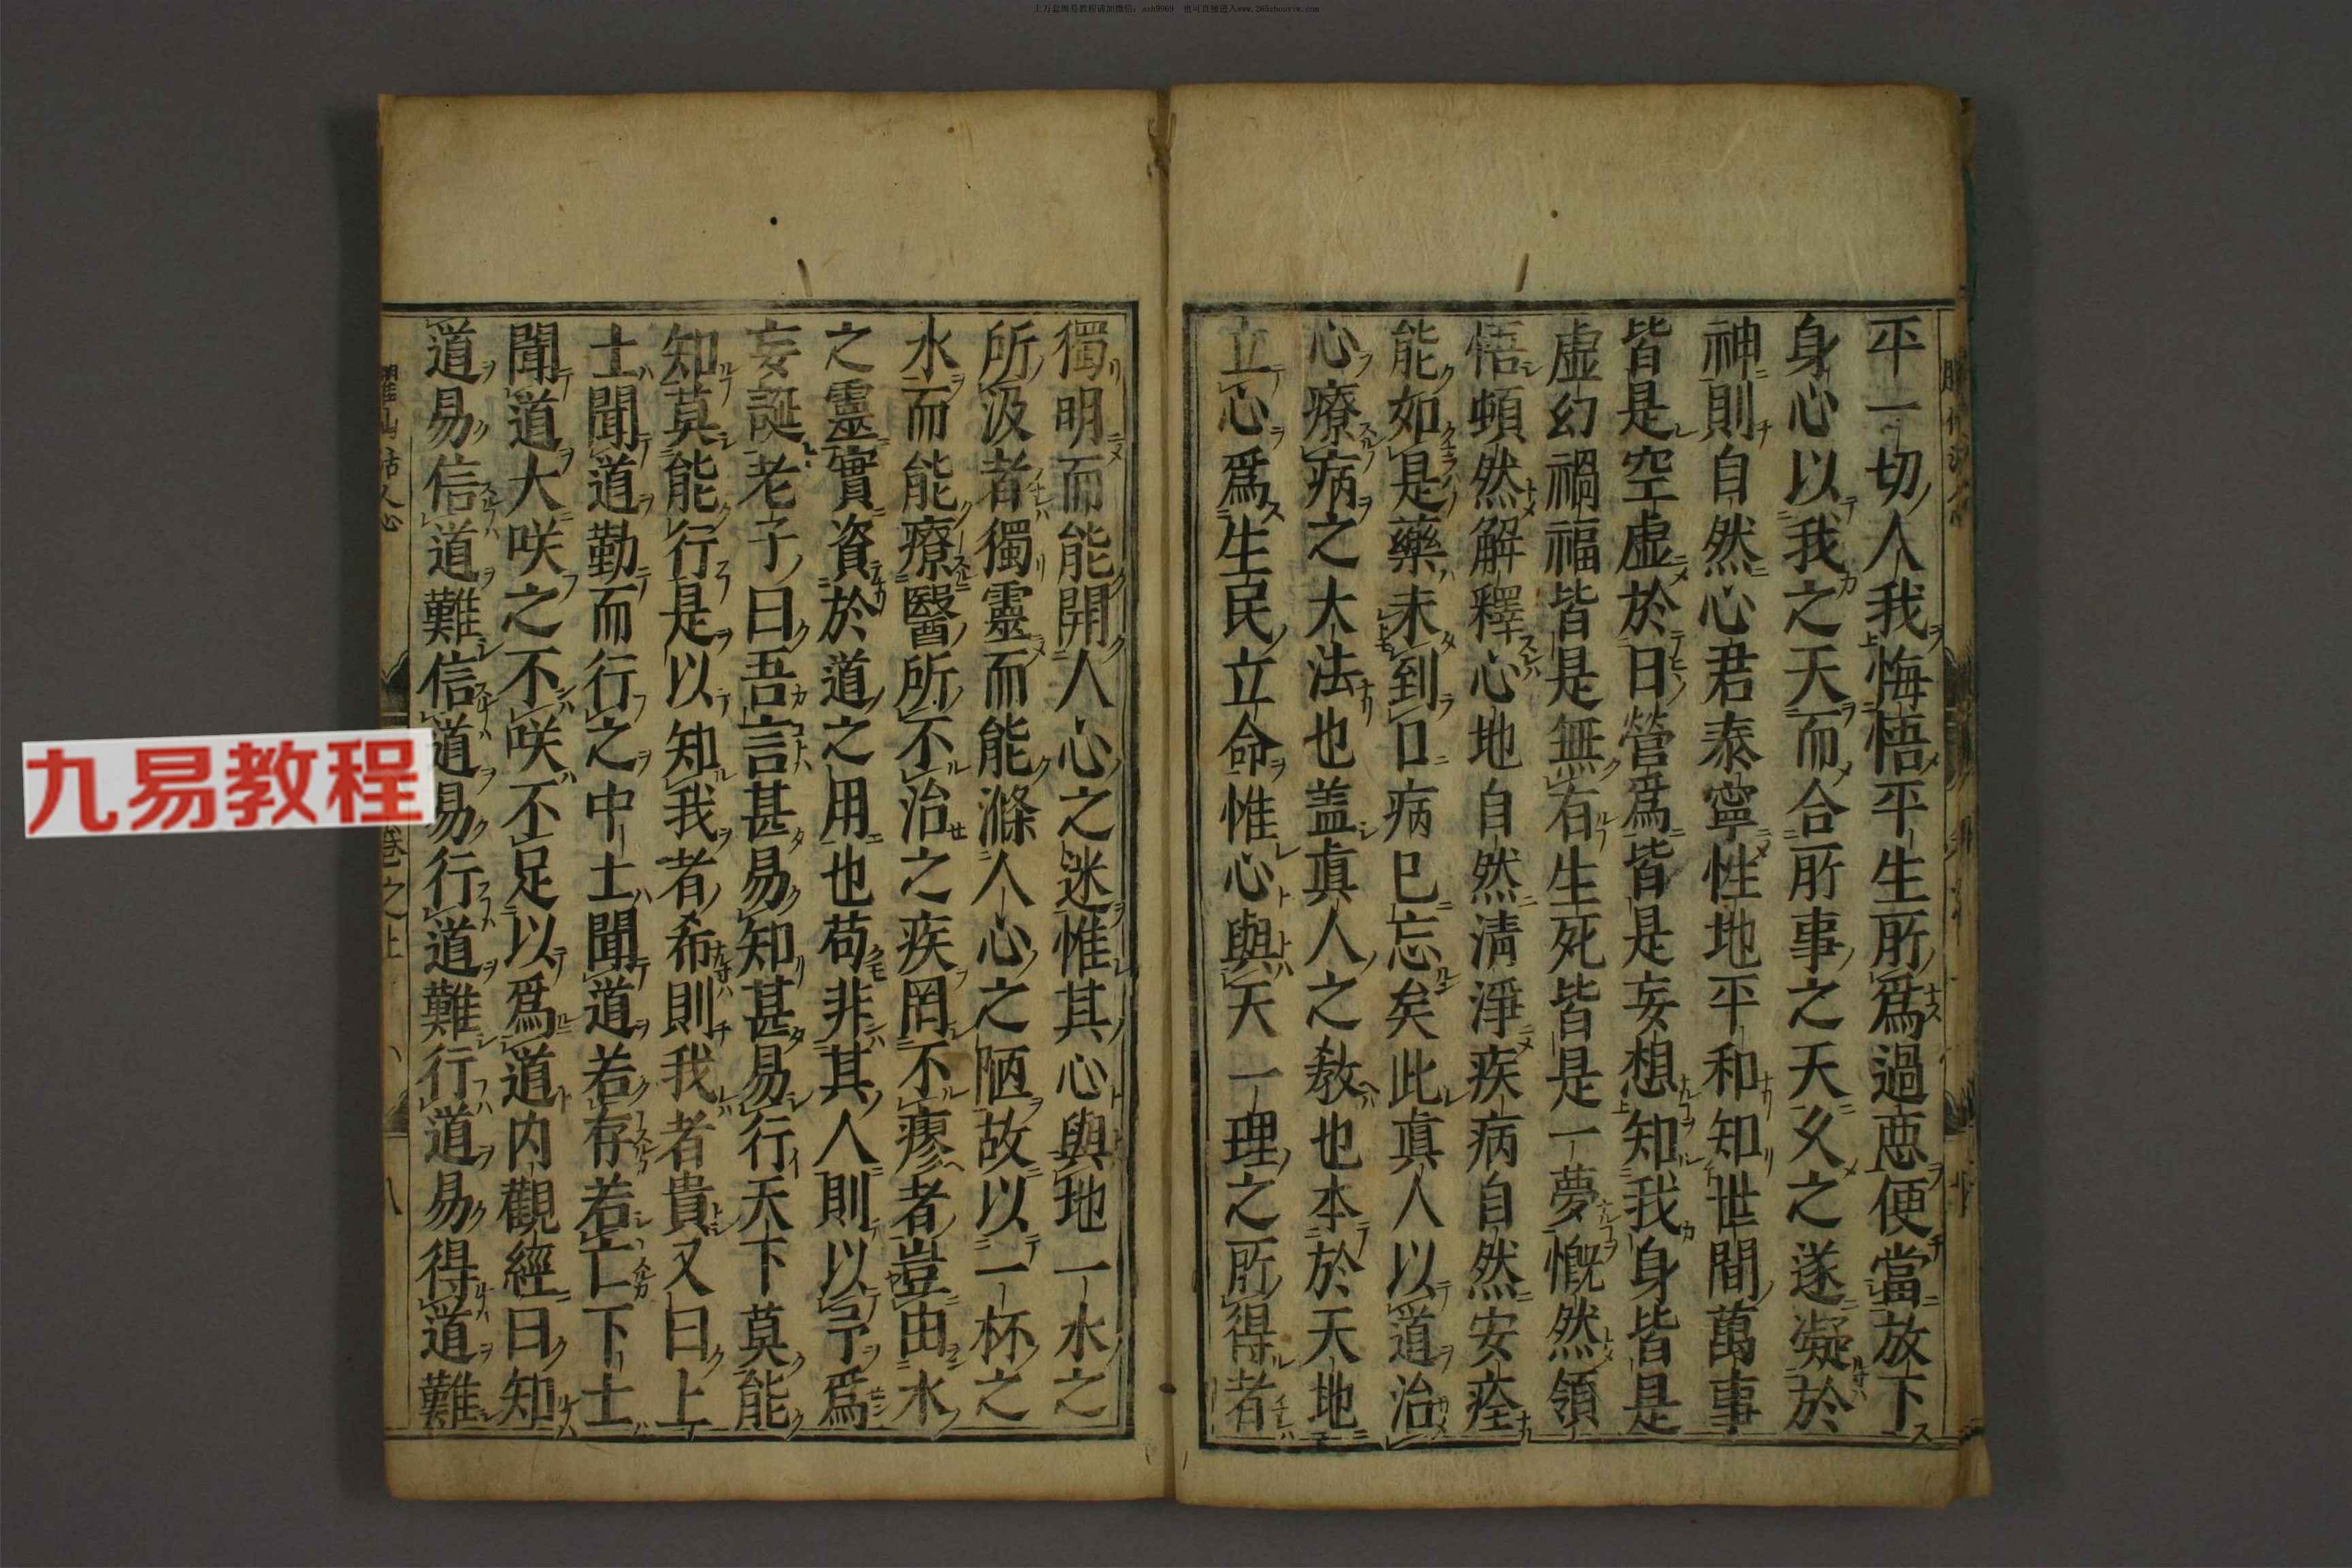 平一切人我悔悟平生所爲過惡便當放下
身心以我之天而合所事之天久之遂凝於
神則自然心君泰寧性地平和知世間萬事
皆是空虛於日營爲皆是妄想知我身皆是
虛幻禍福皆是無有生死皆是一夢慨然領
悟頓然解釋心地自然清淨疾病自然安痊
能如是藥未到口病已忘矣此眞人以道治
心療病之大法也盖眞人之教也本於天地
立心爲生民立命惟心與天一理之所得者
獨明而能開人心之迷惟其心與地一水之
所汲者獨靈而能滌人心之陋故以一杯之
水而能療醫所不治之疾罔不瘳者豈由水
之靈實資於道之用也苟非其人則以予爲
妄誕老子曰吾言甚易知甚易行天下莫能
知莫能行是以知我者希則我者貴又曰上
士聞道勤而行之中士聞道若存若亡下士
聞道大咲之不咲不足以爲道内觀經曰知
道易信道難信道易行道難行道易得道難
卷之上
八
九易教程